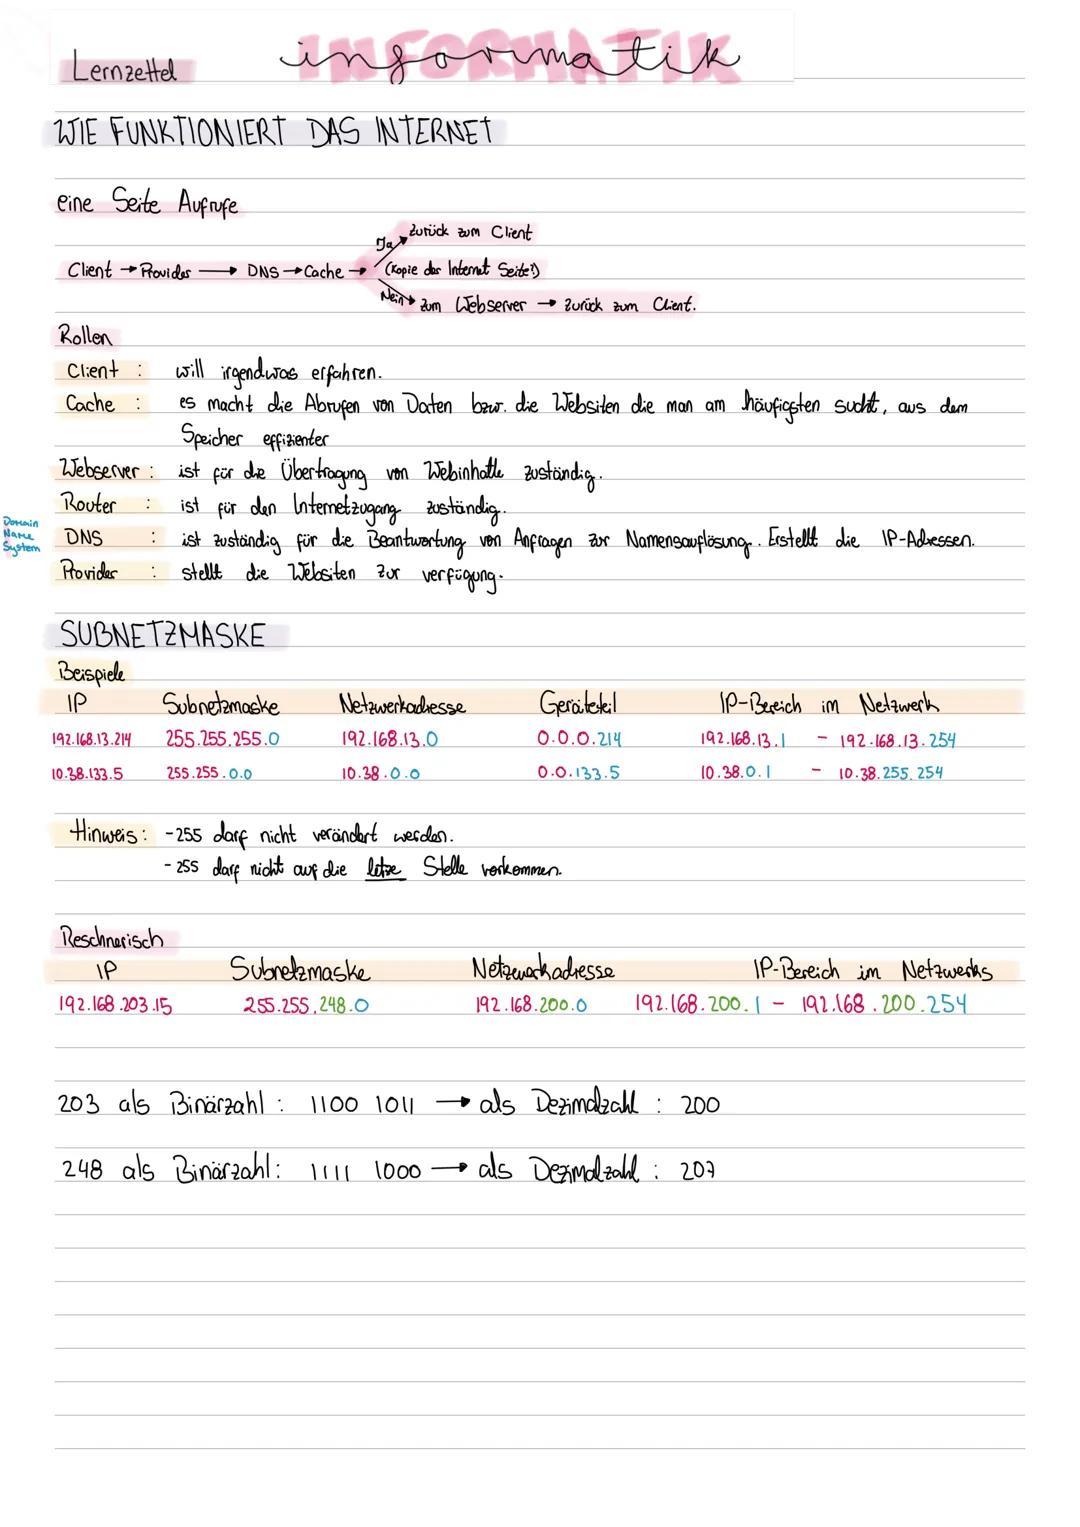 Lernzettel
INFORMATIK
informatik
WIE FUNKTIONIERT DAS INTERNET
eine Seite Aufrufe
Ja zurück zum Client
Client → Provider → DNS → Cache → (Kopie der Internet Seite?)
Nein zum Webserver → zurück zum Client.
Rollen
Client : will irgendwas erfahren.
Cache : es macht die Abrufen von Daten bzw. die Websiten die man am häufigsten sucht, aus dem
Speicher effizienter
Webserver : ist für die Übertragung von Webinhalte zuständig.
Router : ist für den Internetzugang zuständig.
Domain Name System
DNS : ist zuständig für die Beantwortung von Anfragen zur Namensauflösung. Erstellt die IP-Adressen.
Provider : stellt die Websiten zur verfügung.
SUBNETZMASKE
Beispiele
IP Subnetzmaske Netzwerkadresse Geräteteil IP-Bereich im Netzwerk
192.168.13.214 255.255.255.0 192.168.13.0 0.0.0.214 192.168.13.1 - 192.168.13.254
10.38.133.5 255.255.0.0 10.38.0.0 0.0.133.5 10.38.0.1 - 10.38.255.254
Hinweis: -255 darf nicht verändert werden.
-255 darf nicht auf die letze Stelle vorkommen.
Reschnerisch
IP Subnetzmaske Netzwerkadresse IP-Bereich im Netzwerks
192.168.203.15 255.255.248.0 192.168.200.0 192.168.200.1 - 192.168.200.254
203 als Binärzahl : 1100 1011 → als Dezimalzahl : 200
248 als Binärzahl: 1111 1000 → als Dezimalzahl : 207